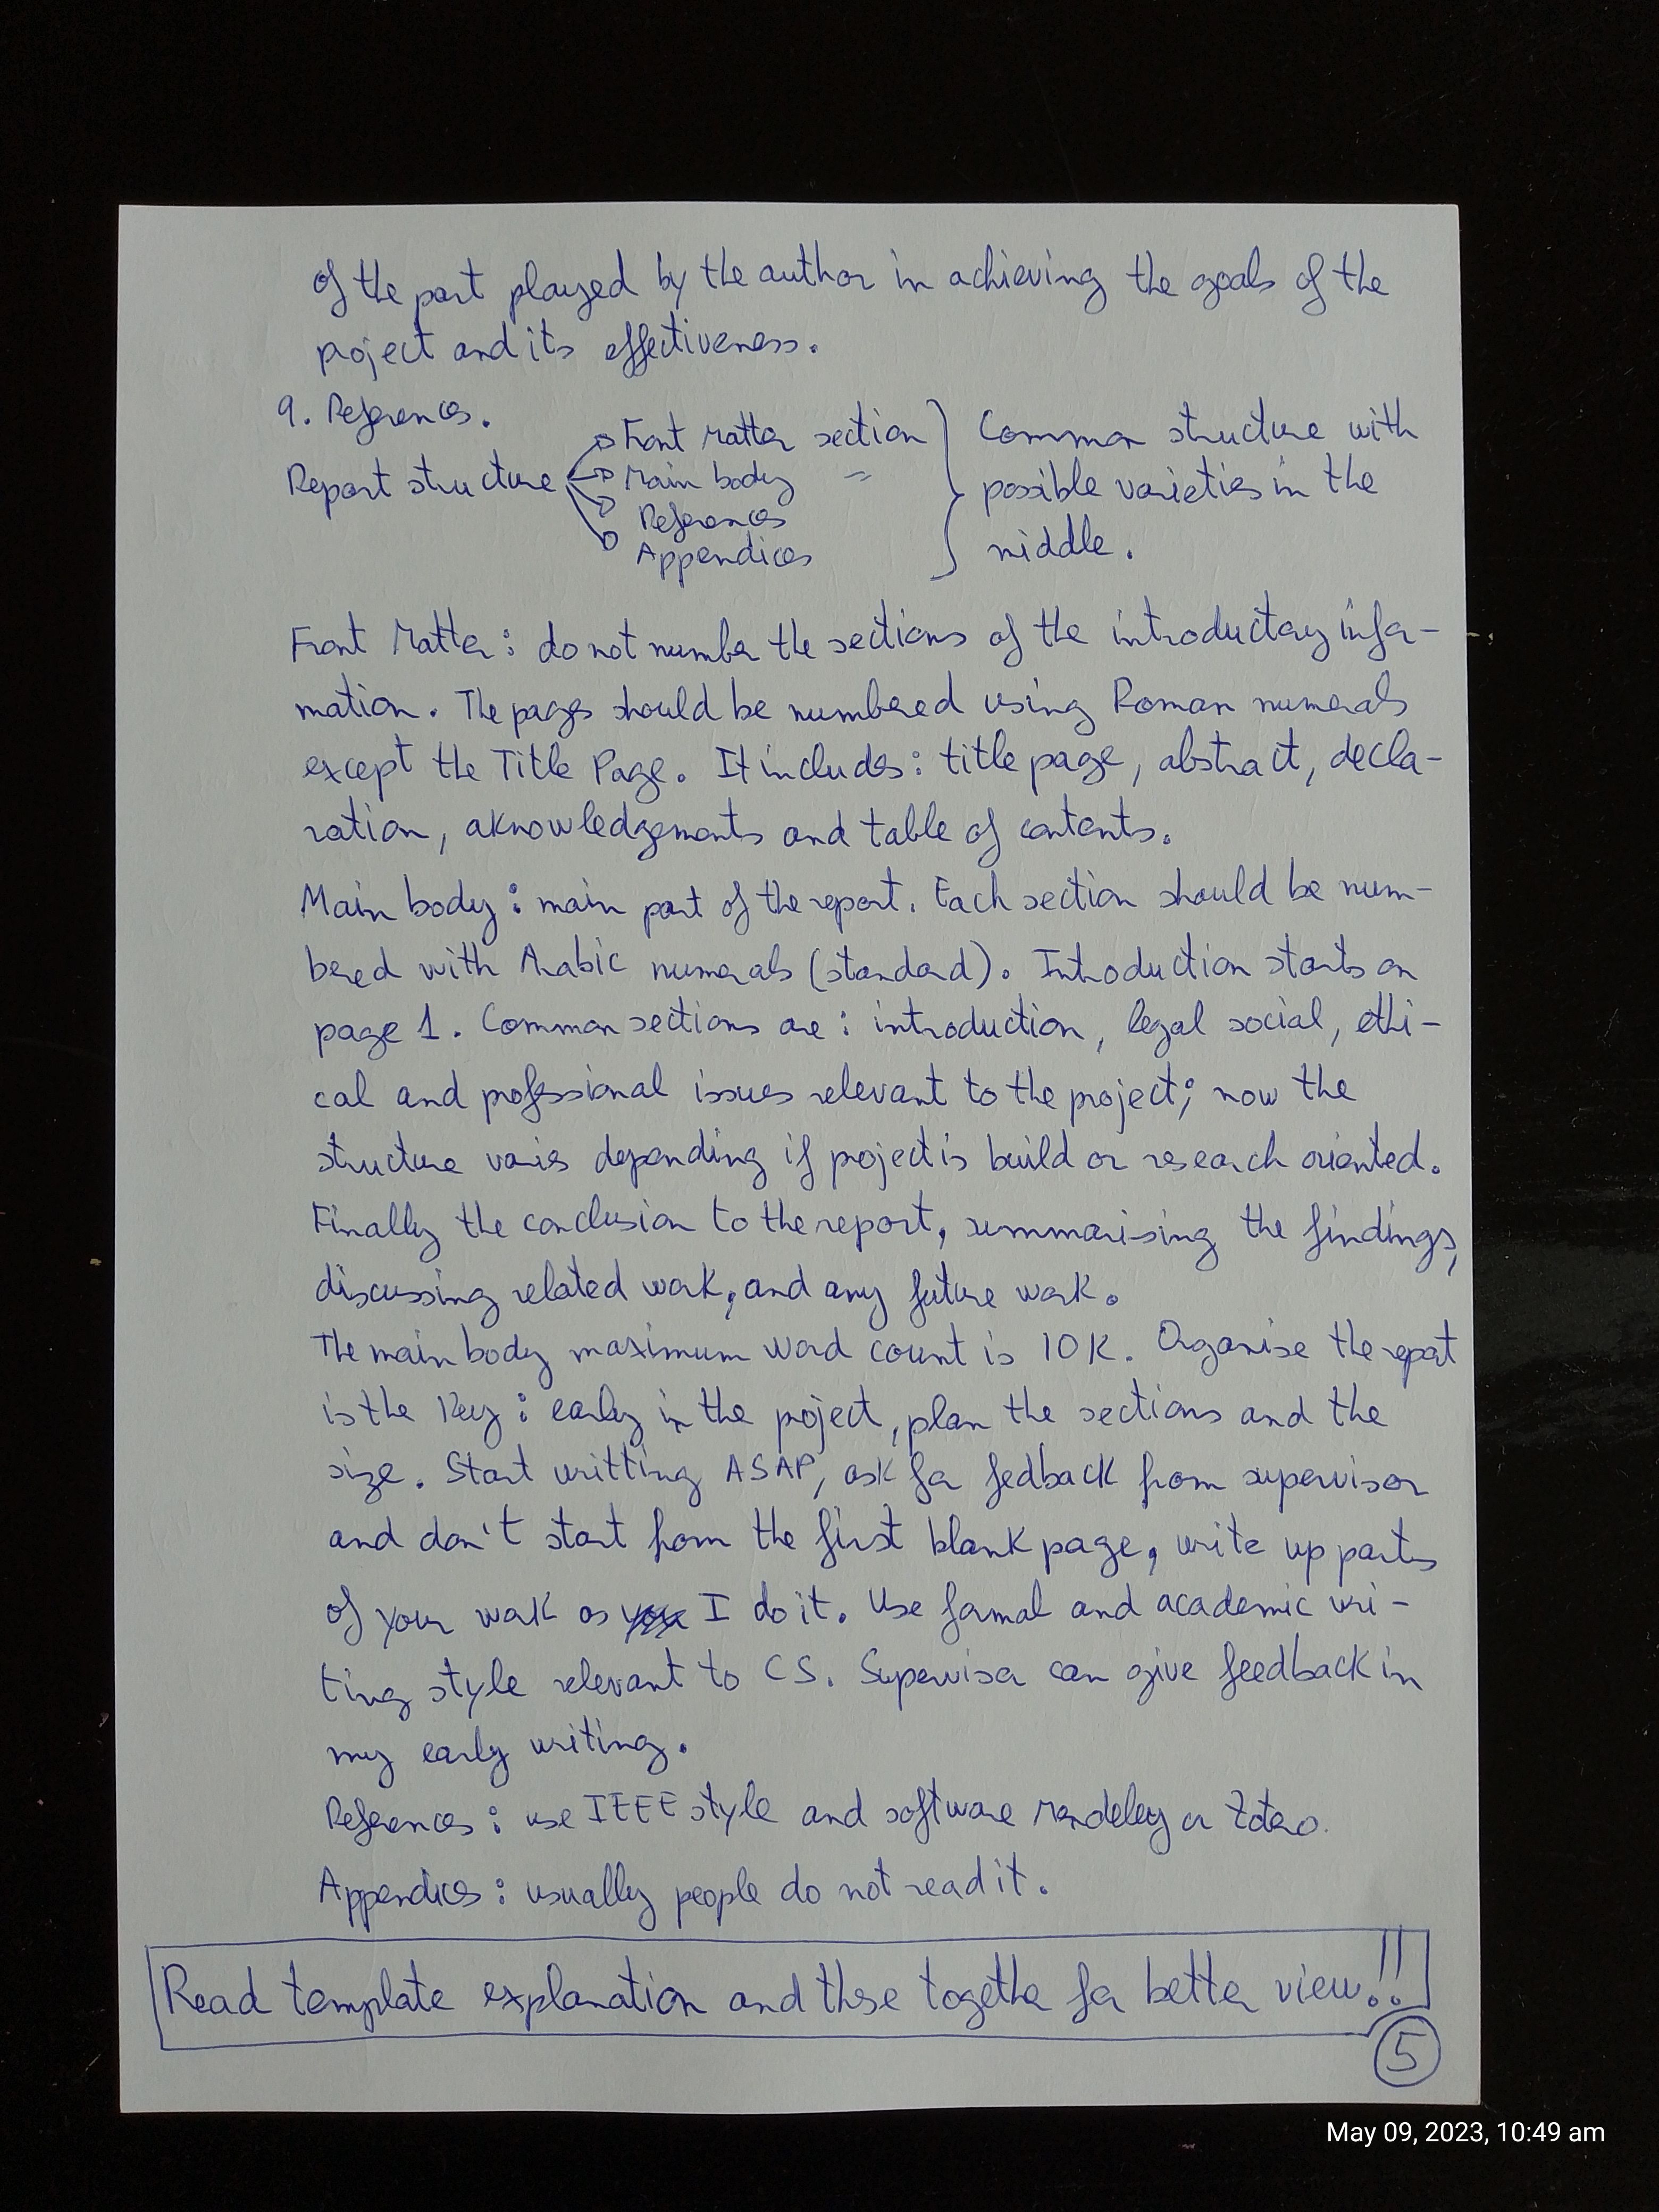 of the part played by the author in achieving the goals of the
project and its effectiveness.
9. References.
Report structure
Front Matter section
Main body "
References
Appendices
Common structure with
possible varieties in the
middle.
Front Matter: do not number the sections of the introductory infor-
mation. The pages should be numbered using Roman numerals
except the Title Page. It includes: title page, abstract, decla-
ration, aknowledgements and table of contents.
Main body: main part of the report. Each section should be num-
bered with Arabic numerals (standard). Introduction starts on
page 1. Common sections are: introduction, legal social, ethi-
cal and professional issues relevant to the project; now the
structure varies depending if project is build or research oriented.
Finally the conclusion to the report, summarising the findings,
discussing related work, and any future work.
The main body maximum word count is 10K. Organise the report
is the key: early in the project, plan the sections and the
size. Start writting ASAP, ask for fedback from supervisor
and don't start from the first blank page, write up parts
of your work as I do it. Use formal and academic wri-
ting style relevant to CS. Supervisor can give feedback in
my early writing.
References: use IEEE style and software Mendeley or Zotero.
Appendices: usually people do not read it.
Read template explanation and these together for better view!!
5
May 09, 2023, 10:49 am